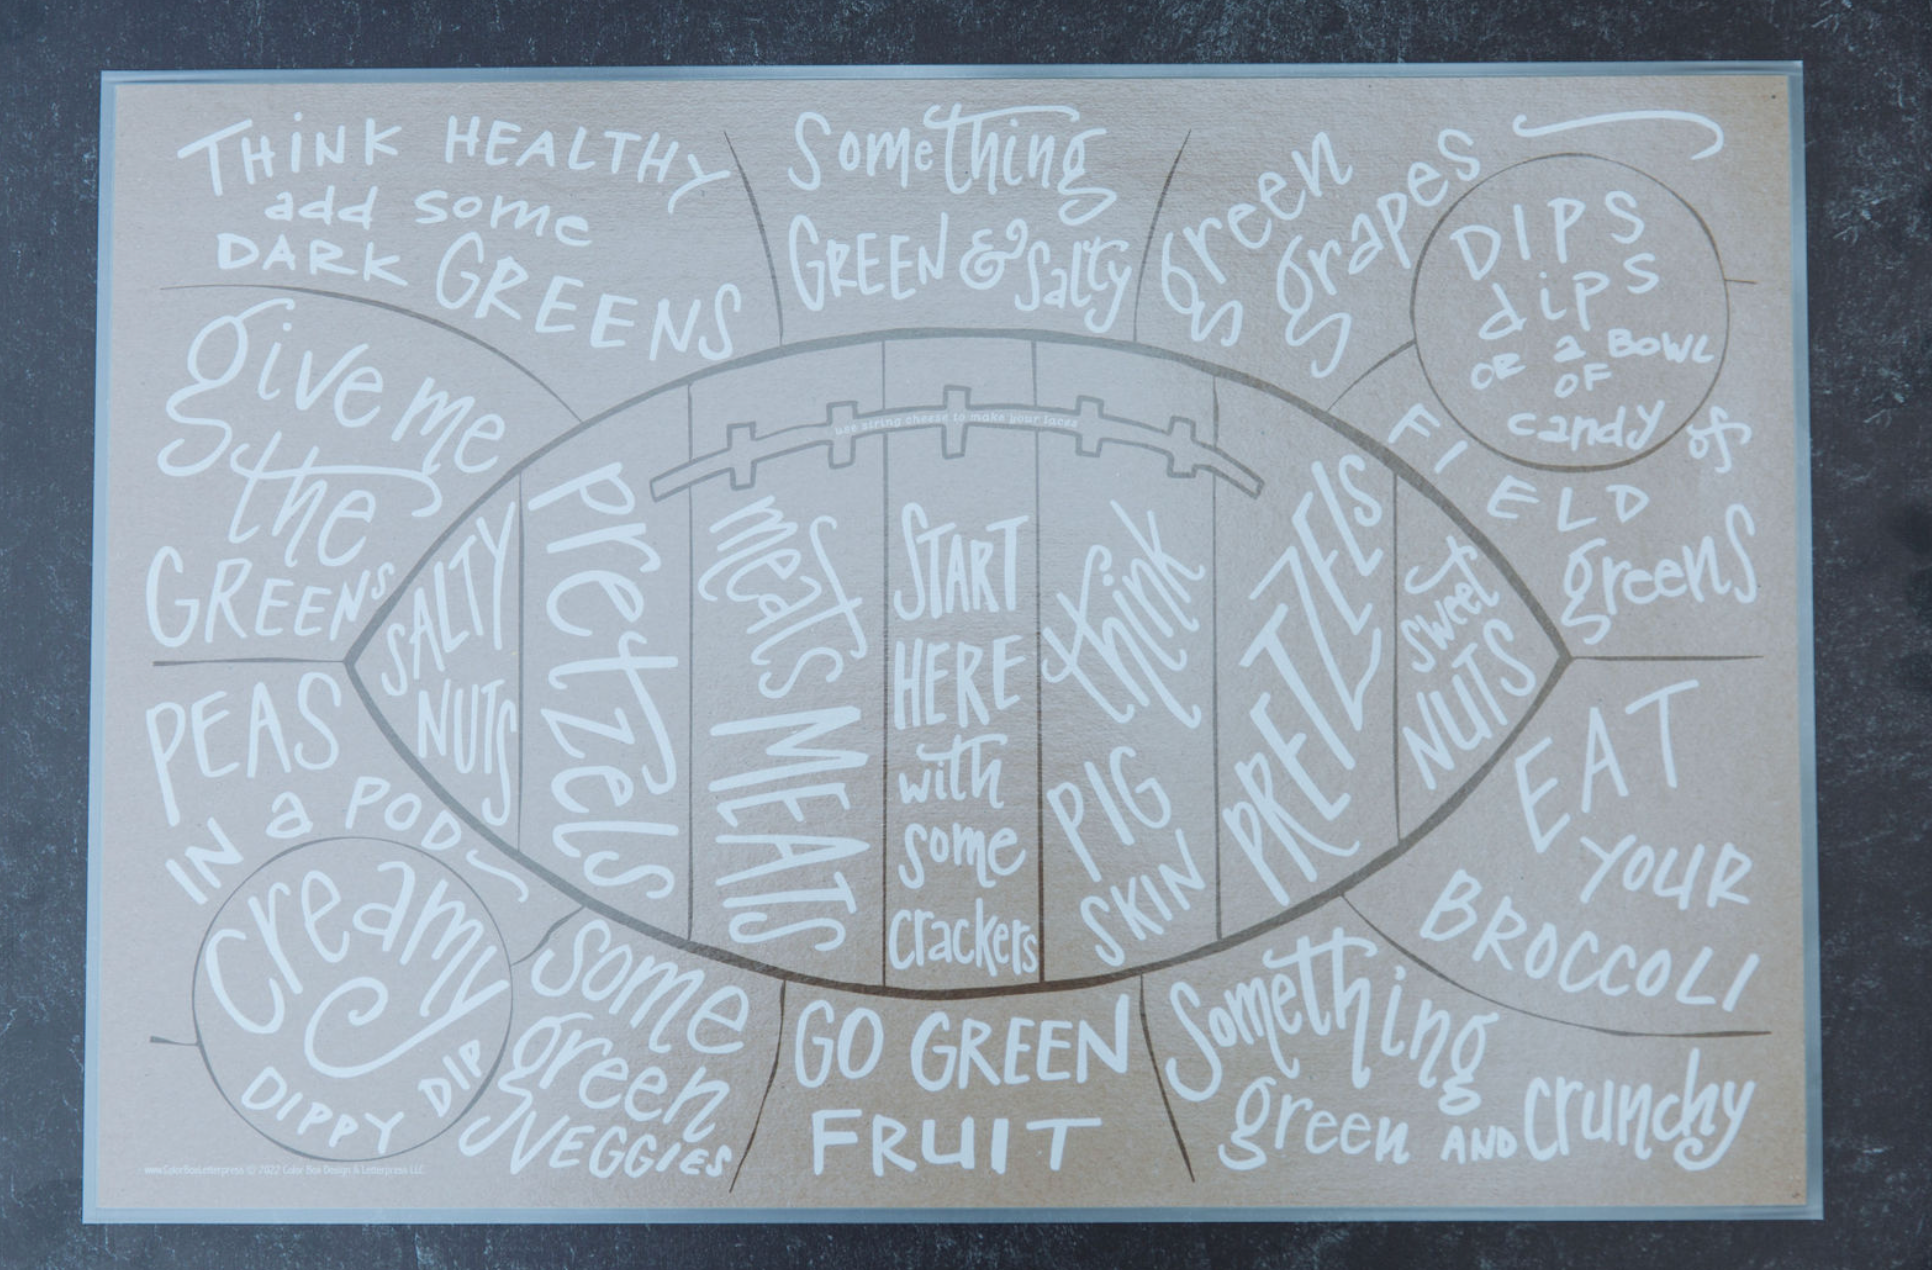 THINK HEALTHY
add some
DARK GREENS
Something
GREEN & Salty
Green
Grapes
DIPS
dips
OR a BOWL
OF
candy
give me
the
GREENS
FIELD of
greens
use string cheese to make your laces
SALTY
NUTS
PretZels
meats
MEATS
START
HERE
with
some
crackers
think
PIG
SKIN
PRETZELS
sweet
NUTS
PEAS
IN a POD
EAT
YOUR
BROCCOLI
Creamy
DIPPY DIP
Some
green
VEGGIES
GO GREEN
FRUIT
Something
green AND Crunchy
www.ColorBoxLetterpress © 2022 Color Box Design & Letterpress LLC